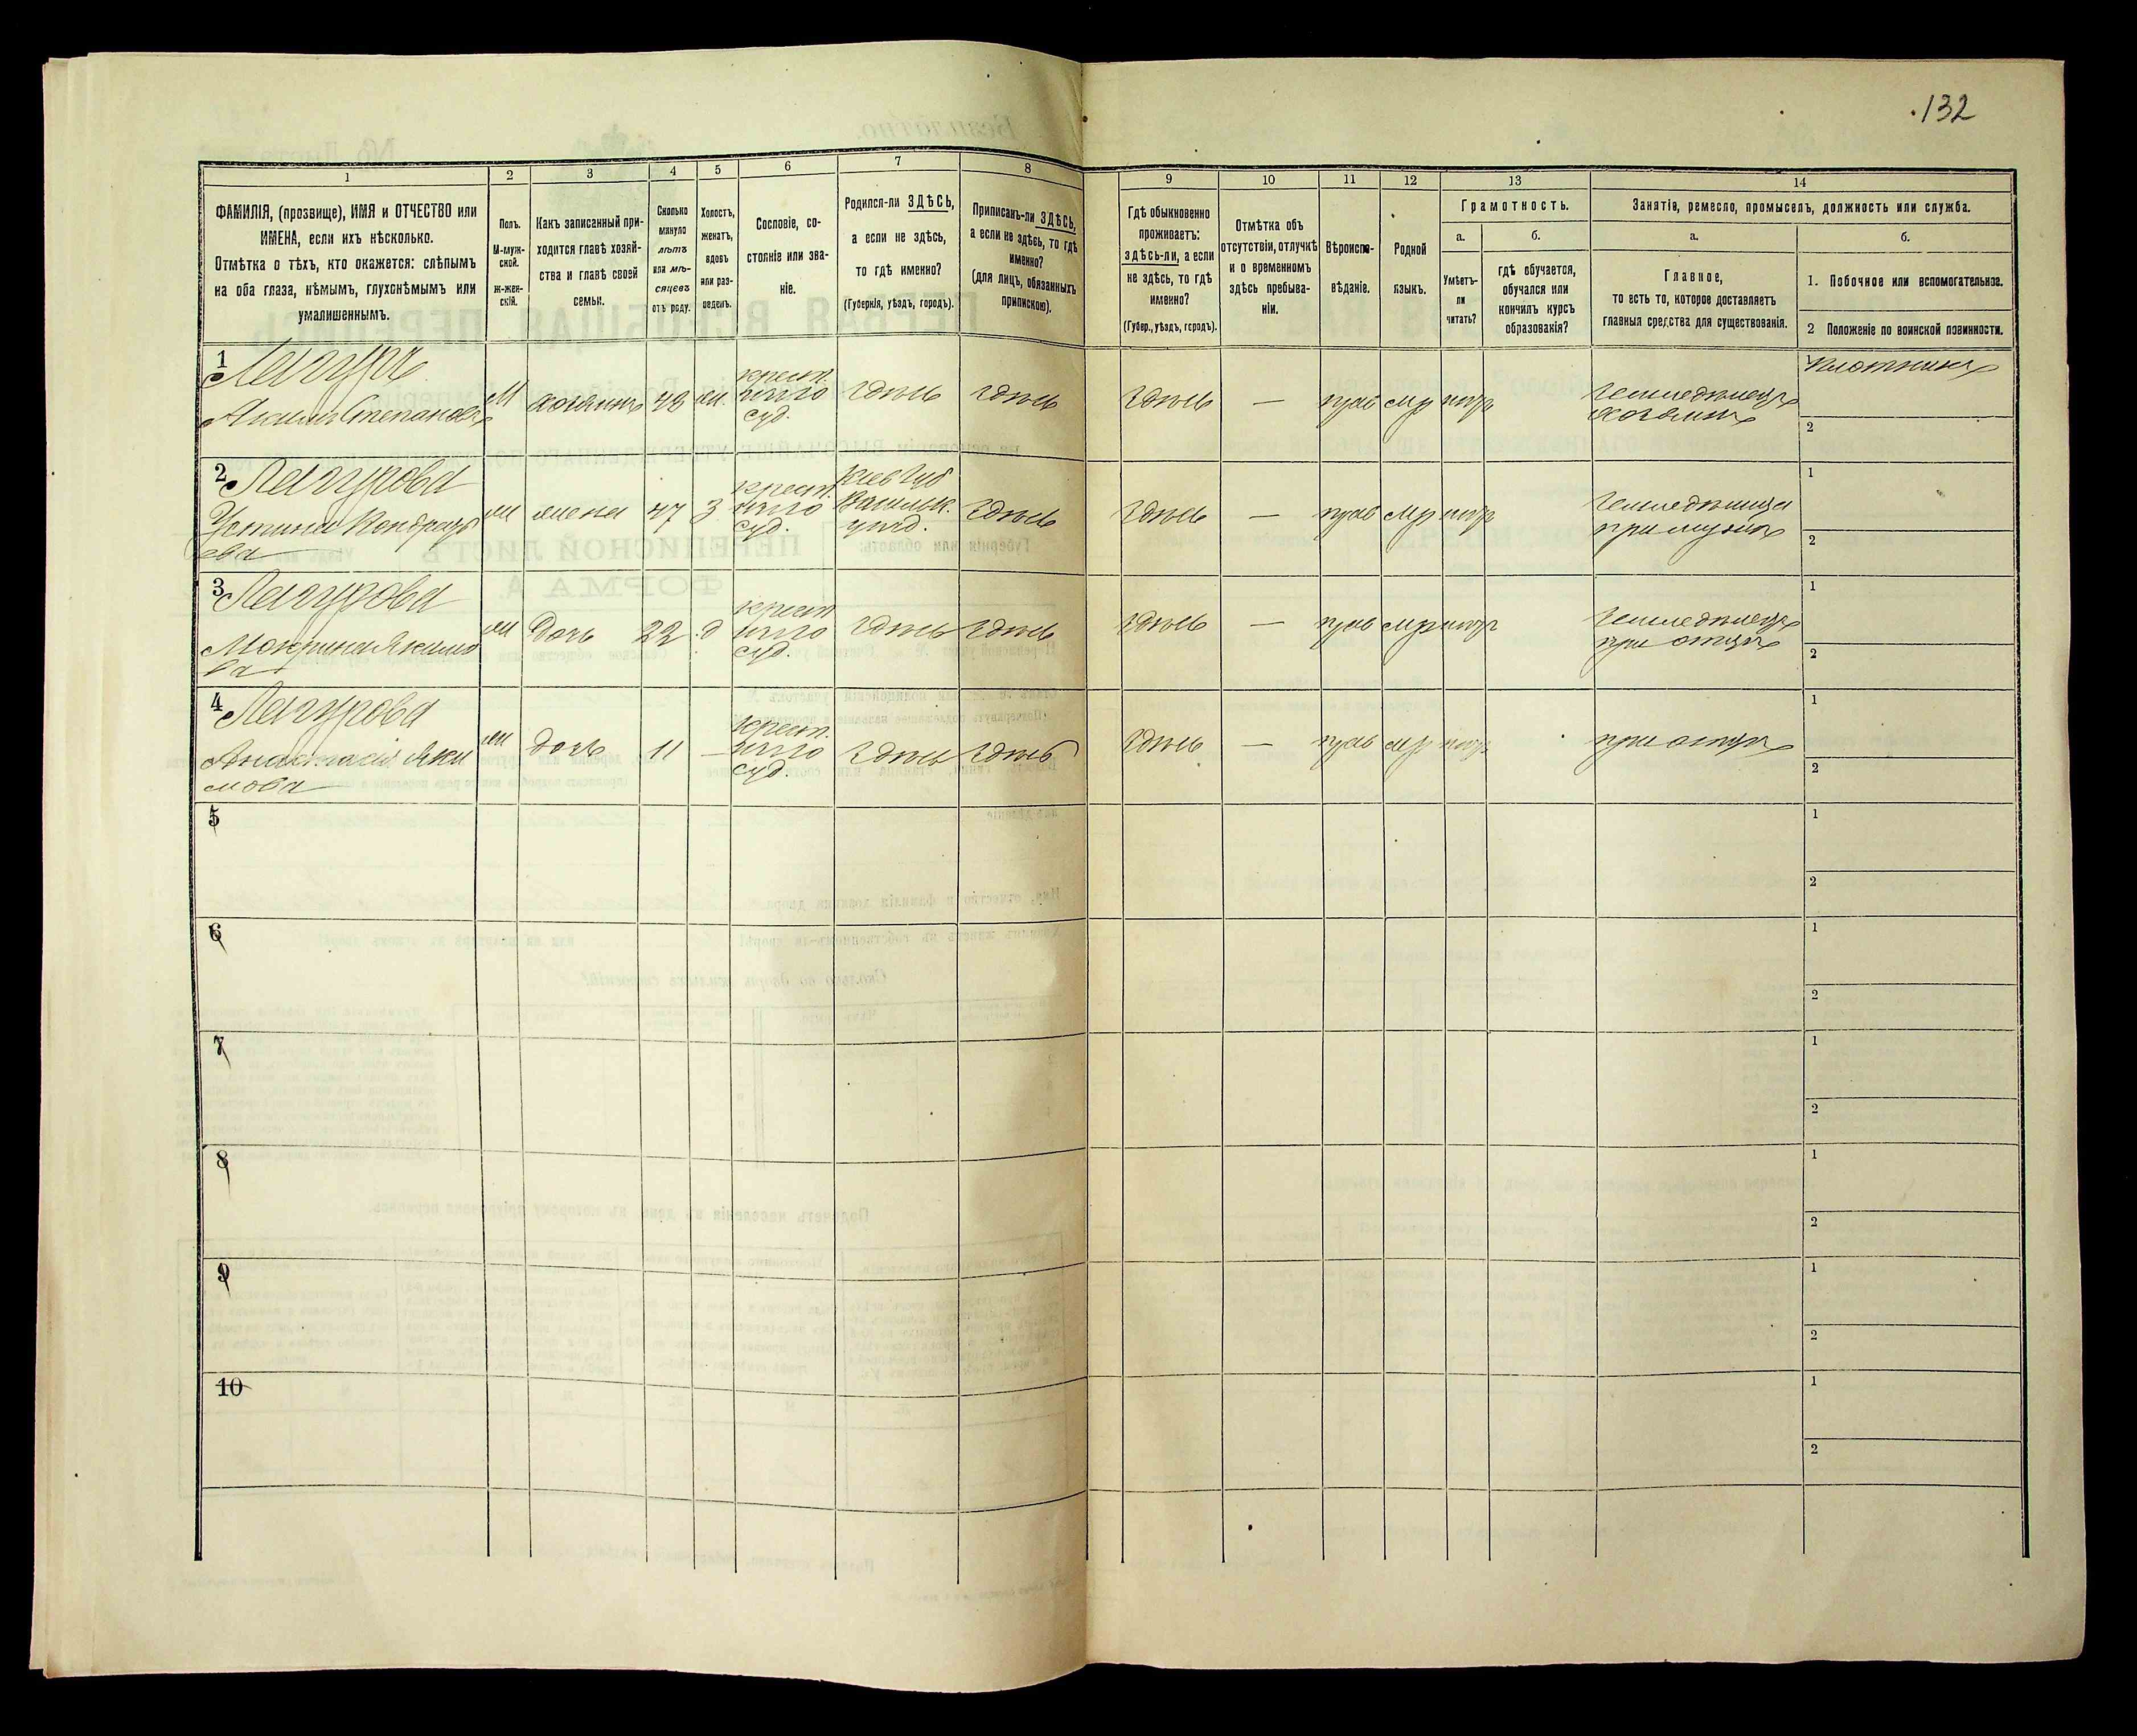 132
1
2
3
4
5
6
7
8
9
10
11
12
13
14
ФАМИЛІЯ, (прозвище), ИМЯ и ОТЧЕСТВО или
ИМЕНА, если ихъ нѣсколько.
Отмѣтка о тѣхъ, кто окажется: слѣпымъ
на оба глаза, нѣмымъ, глухонѣмымъ или
умалишеннымъ.
Полъ.
М-муж-
ской.
ж-жен-
скій.
Какъ записанный при-
ходится главѣ хозяй-
ства и главѣ своей
семьи.
Сколько
минуло
лѣтъ
или мѣ-
сяцевъ
отъ роду.
Холостъ,
женатъ,
вдовъ
или раз-
веденъ.
Сословіе, со-
стояніе или зва-
ніе.
Родился-ли ЗДѢСЬ,
а если не здѣсь,
то гдѣ именно?
(Губернія, уѣздъ, городъ).
Приписанъ-ли ЗДѢСЬ,
а если не здѣсь, то гдѣ
именно?
(для лицъ, обязанныхъ
припискою).
Гдѣ обыкновенно
проживаетъ:
здѣсь-ли, а если
не здѣсь, то гдѣ
именно?
(Губер., уѣздъ, городъ).
Отмѣтка объ
отсутствіи, отлучкѣ
и о временномъ
здѣсь пребыва-
ніи.
Вѣроиспо-
вѣданіе.
Родной
языкъ.
Грамотность.
а.
б.
Умѣетъ-
ли
читать?
гдѣ обучается,
обучался или
кончилъ курсъ
образованія?
Занятія, ремесло, промыселъ, должность или служба.
а.
б.
Главное,
то есть то, которое доставляетъ
главныя средства для существованія.
1. Побочное или вспомогательное.
2 Положеніе по воинской повинности.
1
Акимъ Степановъ
М
хозяинъ
48
крест.
здѣсь
здѣсь
здѣсь
—
прав
мр
нѣтъ
Земледѣлецъ
хозяинъ
1
Плотникъ
2
2
Устинья Кондрать
ева
жена
47
З
крест.
Кіев Губ
Васильк.
уѣзд.
здѣсь
здѣсь
—
прав
мр
нѣтъ
Земледѣлица
при мужѣ
1
2
3
Мокрина Якимо
ва
дочь
22
д
крест
здѣсь
здѣсь
здѣсь
—
прав
мр
нѣтъ
Земледѣлецъ
при отцѣ
1
2
4
Анастасія Яки
мова
дочь
11
—
крест.
здѣсь
здѣсь
здѣсь
—
прав
мр
нѣтъ
при отцѣ
1
2
5
1
2
6
1
2
7
1
2
8
1
2
9
1
2
10
1
2